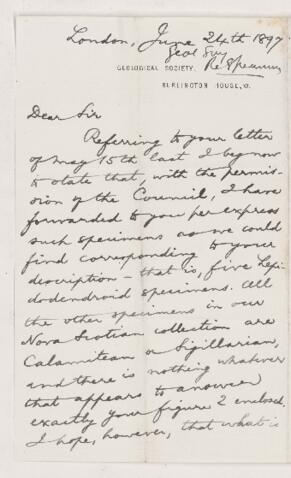 London, June 24th 1897
Geol Surv
Re Specimens
GEOLOGICAL SOCIETY,
BURLINGTON HOUSE, W.
Dear Sir
Referring to your letter
of May 15th last I beg now
to state that, with the permis-
sion of the Council, I have
forwarded to you per express
such specimens as we could
find corresponding to your
description - that is, five Lepi-
dodendroid specimens. All
the other specimens in our
Nova Scotian collection are
Calamitean or Sigillarian,
and there is nothing whatever
that appears to answer
exactly your figure 2 enclosed.
I hope, however, that what is